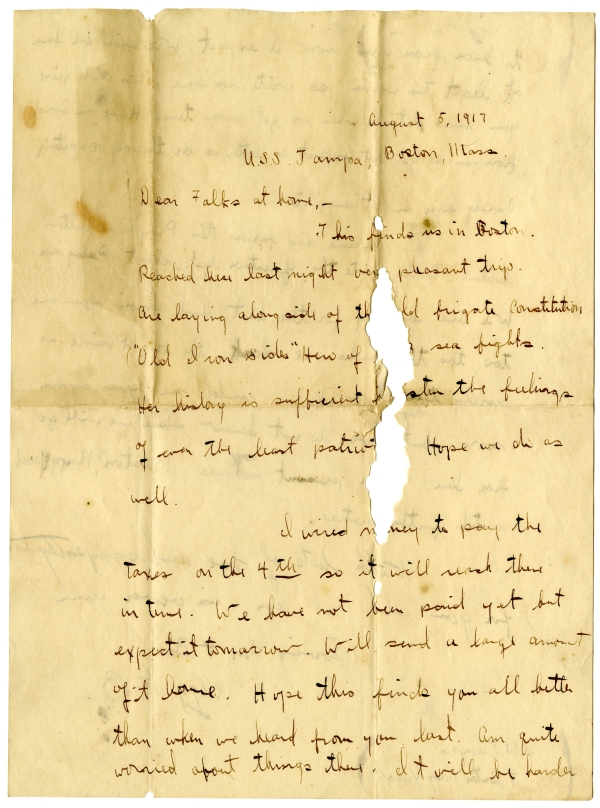 August 5, 1917
U.S.S. Tampa, Boston, Mass.
Dear Folks at home,-
This finds us in Boston.
Reached here last night very pleasant tryp.
Are laying alongside of th ld frigate Constitution
("Old Iron sides" Hero of sea fights.
Her history is sufficient the feelings
of even the least patriot Hope we do as
well.
I wired money to pay the
taxes on the 4th so it will reach there
in time. We have not been paid yet but
expect it tomorrow. Will send a large amount
of it home. Hope this finds you all better
than when we heard from you last. Am quite
worried about things there. It will be harder